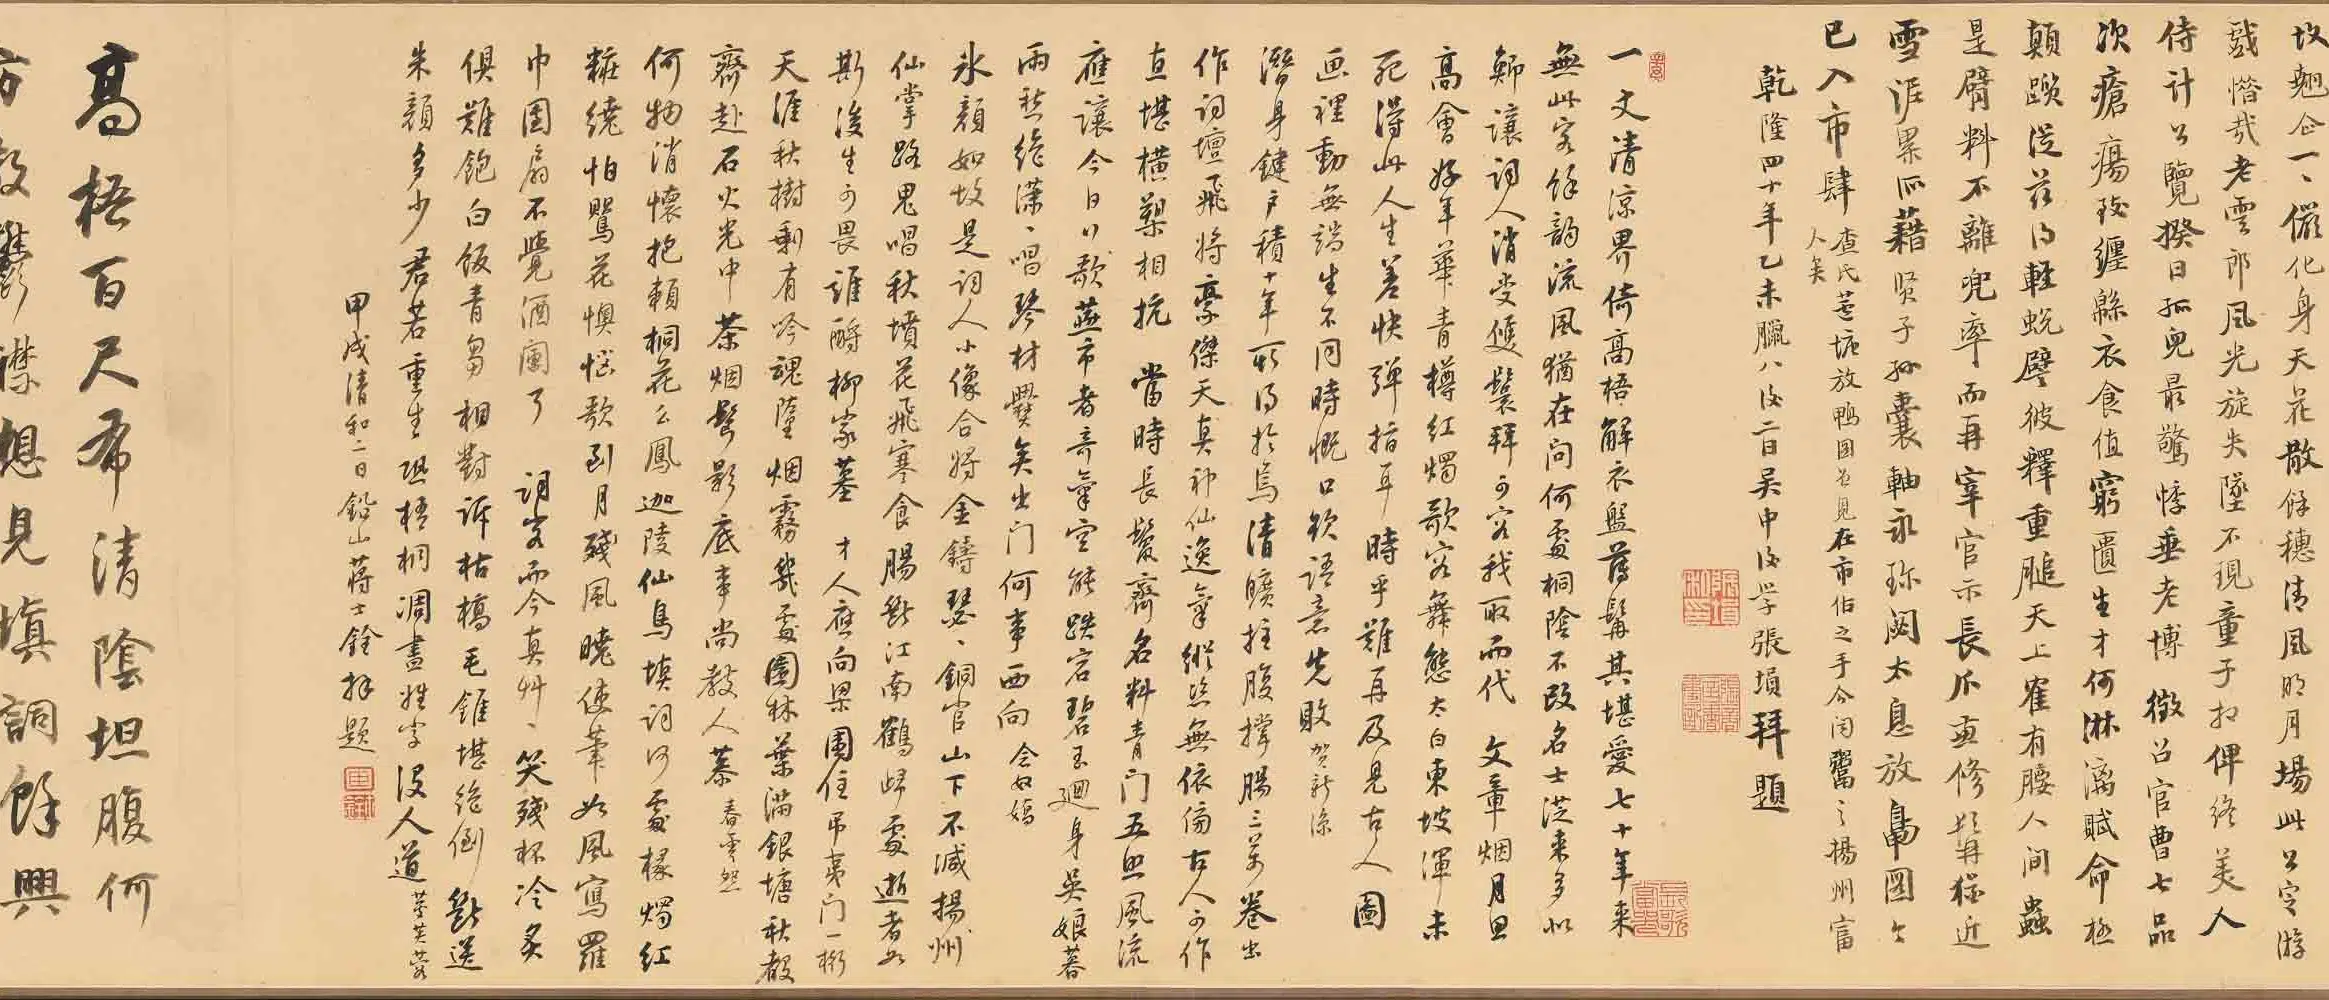 故翹企一、儼化身天花散餘穗清風明月場此公定游
戲憯哉老雲郎風光旋失墜不現童子相俾終美人
侍計公覽揆日孤兒最驚悸垂老博徵召官曹七品
次瘡瘍玫纏緜衣食值窮匱生才何淋漓賦命極
顛躓從茲得輕蛻譬彼釋重膇天上雀有腰人间蟲
是臂料不離兜率而再宰官示長爪画修髯猶近
雪涯累而藉贤子孙囊軸永珎闷太息放鳬圖亦
已入市肆 查氏莲塘放鴨圖曾見在市估之手今闻鬻之揚州富人矣
乾隆四十年乙未臘八後二日吴中後学張塤拜題
一丈清凉界倚高梧解衣盤薄髯其堪愛七十年来
無此客餘韵流風猶在问何處桐陰不改名士從来多似
鲫讓词人消受雙鬟拜可容我取而代 文章烟月思
高會好年華青樽红燭歌容舞態太白東坡渾未
死得此人生差快弹指耳時乎難再及見古人圖
画裡動無端生不同時慨口欲語意先敗 贺新涼
潛身鍵户積十年所得於焉清曠拄腹撐腸三萬卷出
作词壇飛將豪傑天真神仙逸氣縱恣無依傍古人可作
直堪橫槊相抗 當時長鬢齋名料青门五色風流
應讓今日歌燕市者奇氣空能跌宕碧玉迴身吴娘暮
雨愁绝潇、唱琴材爨矣出门何事西向 念奴嬌
氷顏如故是词人小像合將金鑄琴、銅官山下不減揚州
仙掌路鬼唱秋墳花飛寒食腸斷江南鶴歸處逝者如
斯後生可畏誰酹柳家墓 才人應向梁園住吊夷门一樹
天涯秋樹剩有吟魂墮烟霧幾處園林葉滿銀塘秋報
齋赴石火光中茶烟鬓影底事尚教人慕 春雲怨
何物消懷抱賴桐花幺鳳迦陵仙鳥填词何處椽燭红
粧繞怕鴛花懊惱歌到月殘風曉使筆如風寫羅
巾團扇不覺酒闌了 词客而今真艸、笑殘杯冷炙
俱難飽白飯青芻相對訴枯槁毛錐堪绝倒斷送
朱顏多少君若重生恐梧桐凋盡姓字没人道
甲戌清和二日鉛山蒋士銓拜題
高梧百尺布清陰坦腹何
方散鬱襟想見填詞餘興